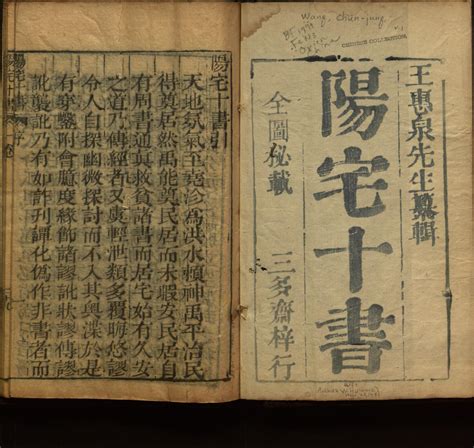 Wang, Chün-jung
CHINESE COLLECTION
王惠泉先生纂輯
陽宅十書
全圖秘載
三多齋梓行
陽宅十書引
天地氛氣至堯汾為洪水賴神禹平治民
得奠居然禹能奠民居而未暇安民居自
有周書通真救貧諸書而居宅始有久安
之道乃傳經者又虞輕泄類多覆晦悠謬
令人自探幽微探討而不入奥漠於是
有穿鑿附會臆度緣飾諸謬訛狀謬傳謬
訛襲訛乃有如詐刊譚化偽作非書者而
陽宅十書
序